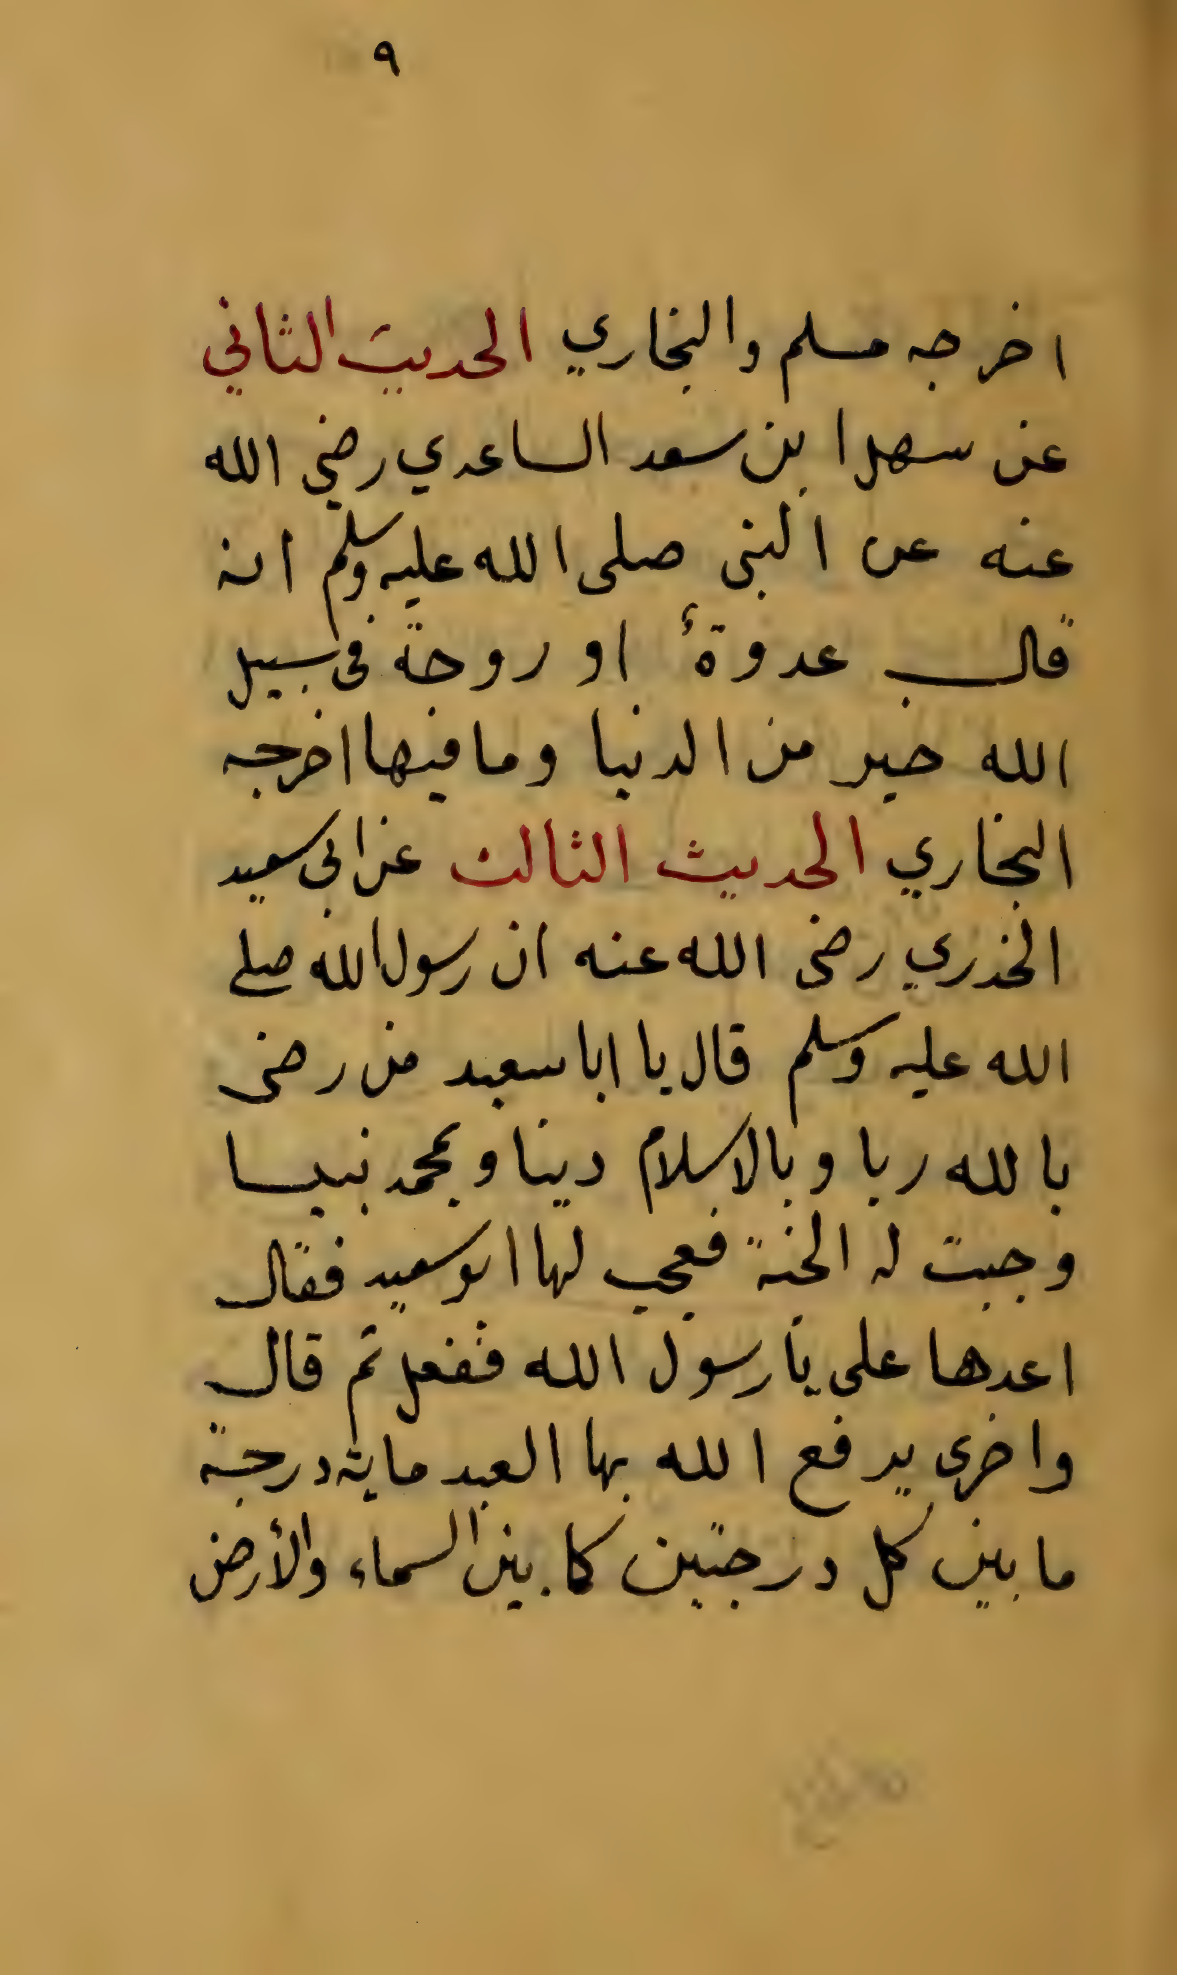 ٩
اخرجه مسلم والبخاري الحديث الثاني
عن سهل ابن سعد الساعدي رضي الله
عنه عن النبي صلى الله عليه وسلم انه
قال عدوةٔ او روحة في سبيل
الله خير من الدنيا وما فيها اخرجه
البخاري الحديث الثالث عن ابي سعيد
الخدري رضى الله عنه ان رسول الله صلے
الله عليه وسلم قال يا ابا سعيد من رضى
بالله ربا وبالاسلام دينا وبمحمد نبيا
وجبت له الجنة فعجب لها ابو سعيد فقال
اعدها على يا رسول الله ففعل ثم قال
واخرى يرفع الله بها العبد ماية درجة
ما بين كل درجتين كما بين السماء والأرض